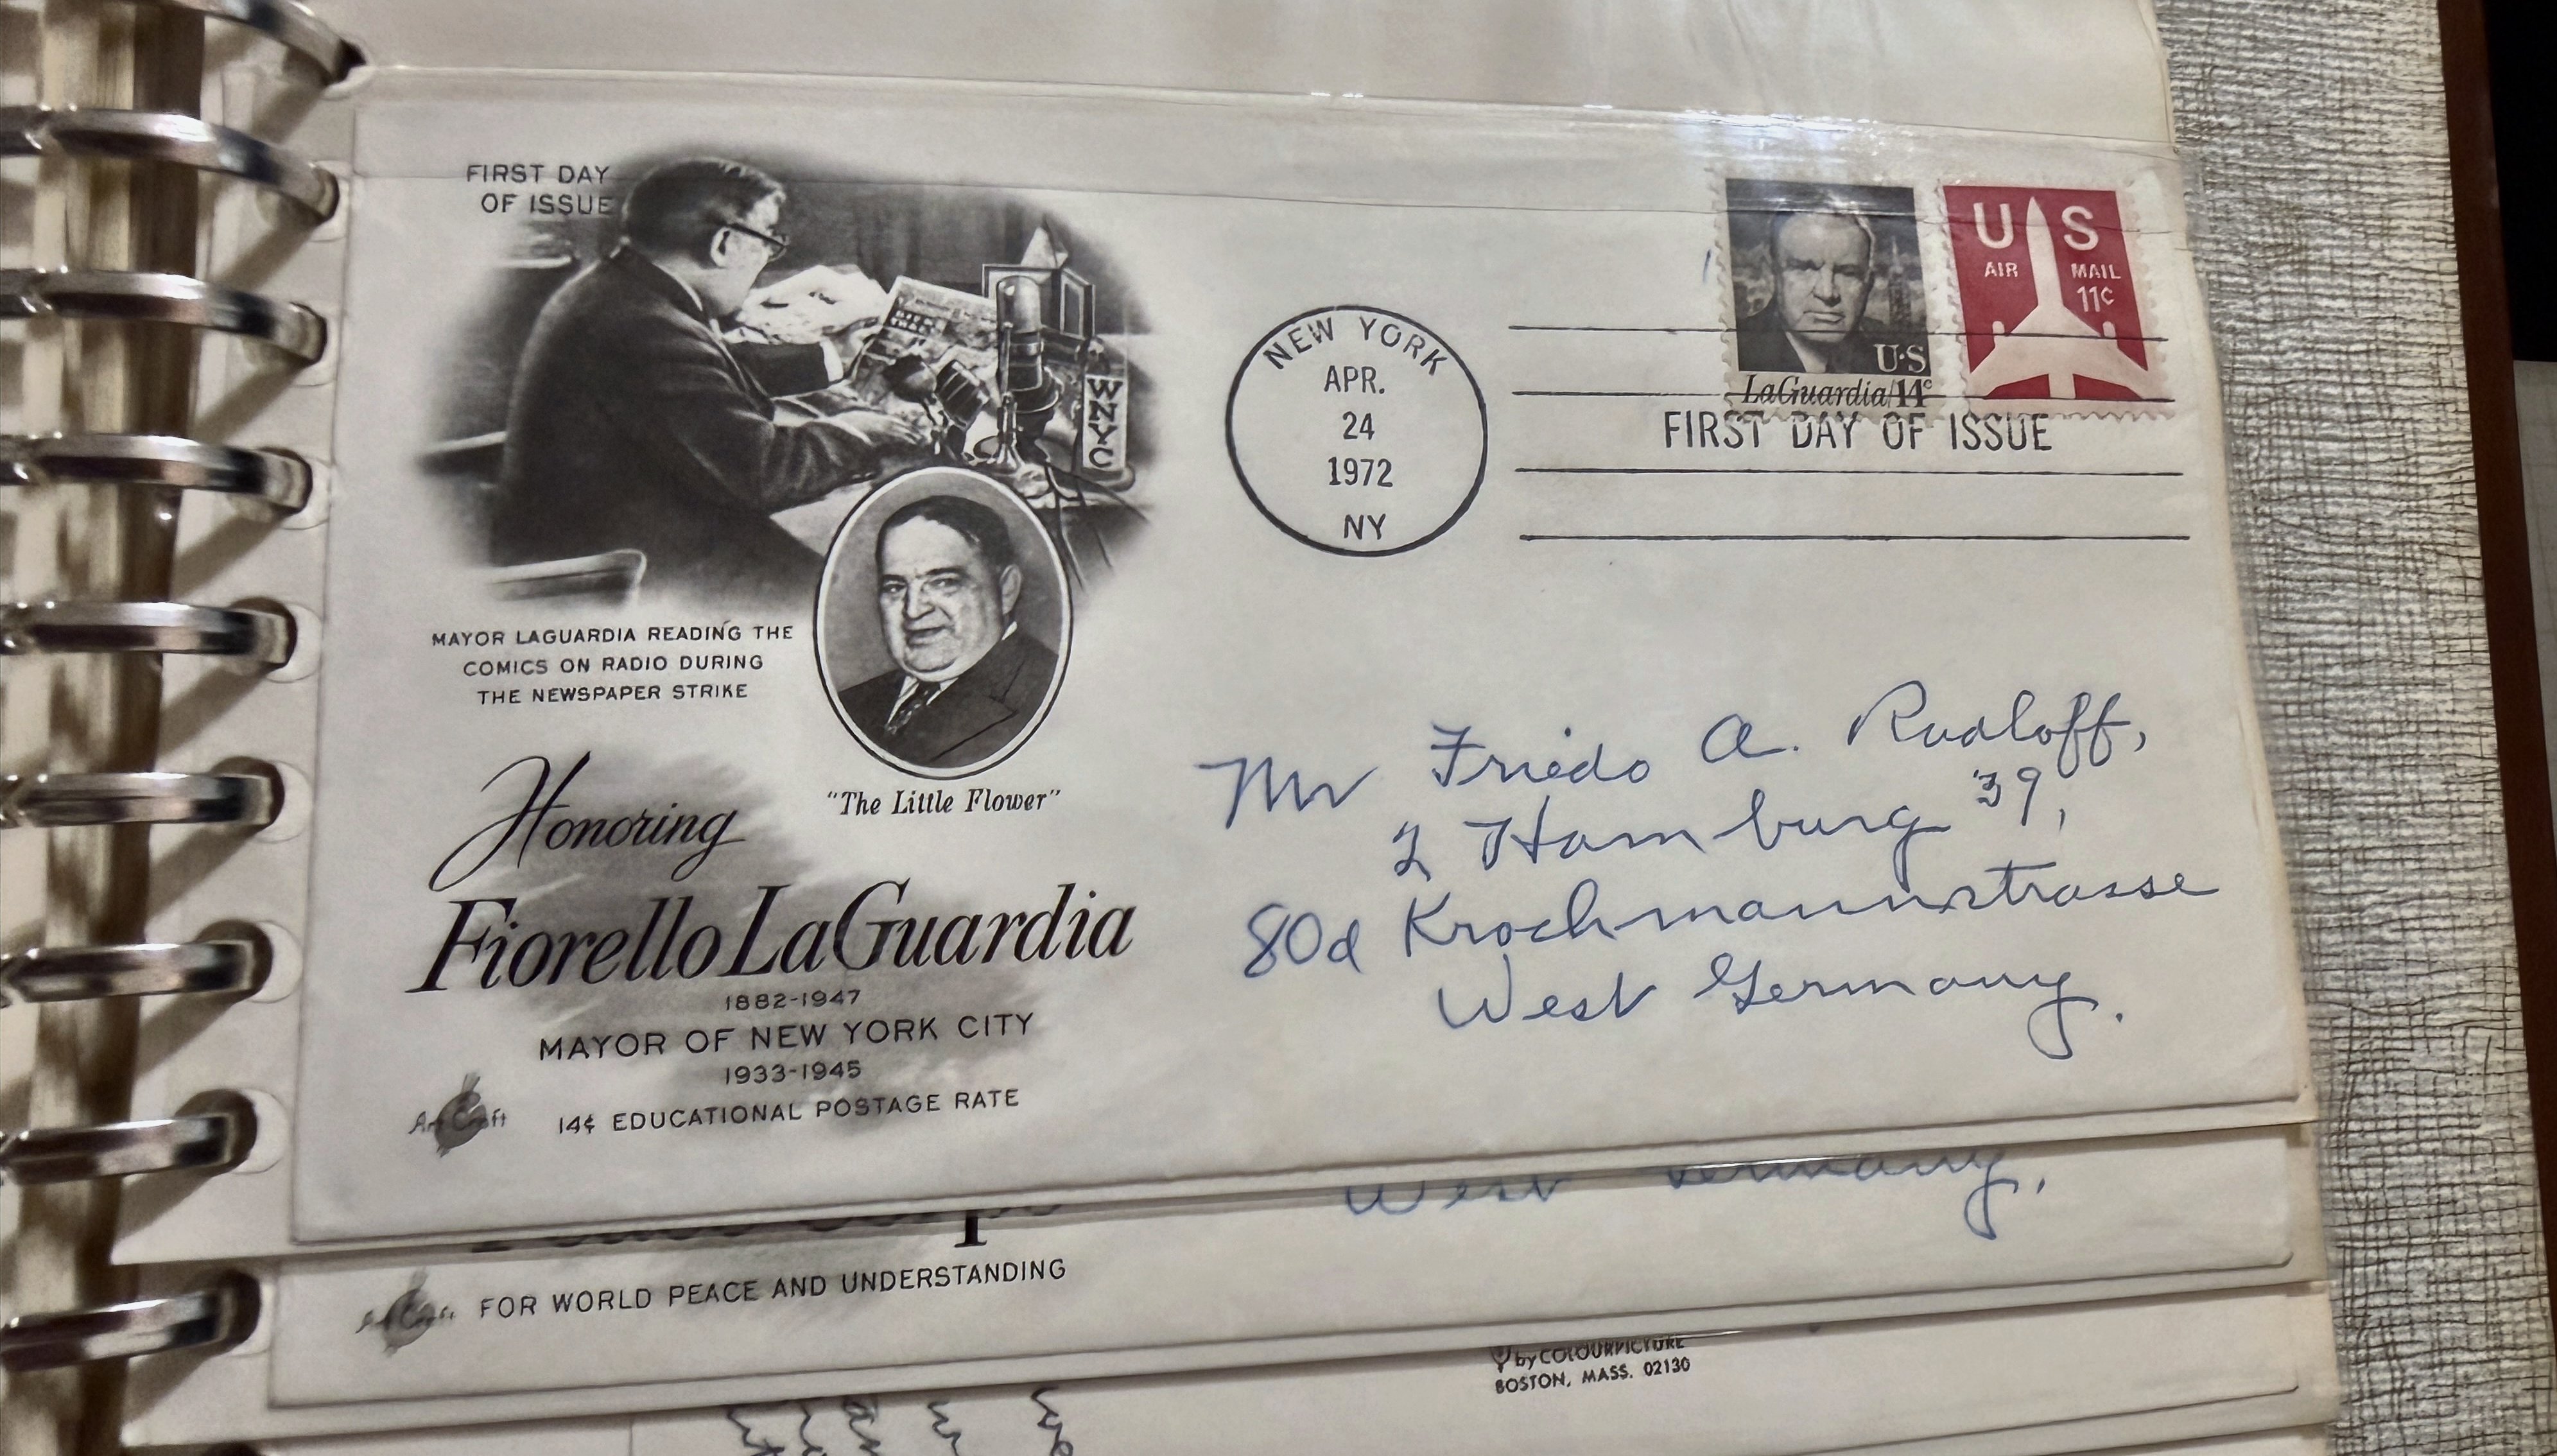 FIRST DAY
OF ISSUE
WNYC
MAYOR LAGUARDIA READING THE
COMICS ON RADIO DURING
THE NEWSPAPER STRIKE
"The Little Flower"
Honoring
Fiorello LaGuardia
1882-1947
MAYOR OF NEW YORK CITY
1933-1945
ArtCraft
14¢ EDUCATIONAL POSTAGE RATE
NEW YORK
APR.
24
1972
NY
U·S
LaGuardia/14c
US
AIR MAIL
11¢
FIRST DAY OF ISSUE
Mr Friedo A. Rudloff,
2 Hamburg 39,
80d Krochmannstrasse
West Germany.
West Germany.
Peace Corps
ArtCraft
FOR WORLD PEACE AND UNDERSTANDING
by COLOURPICTURE
BOSTON, MASS. 02130